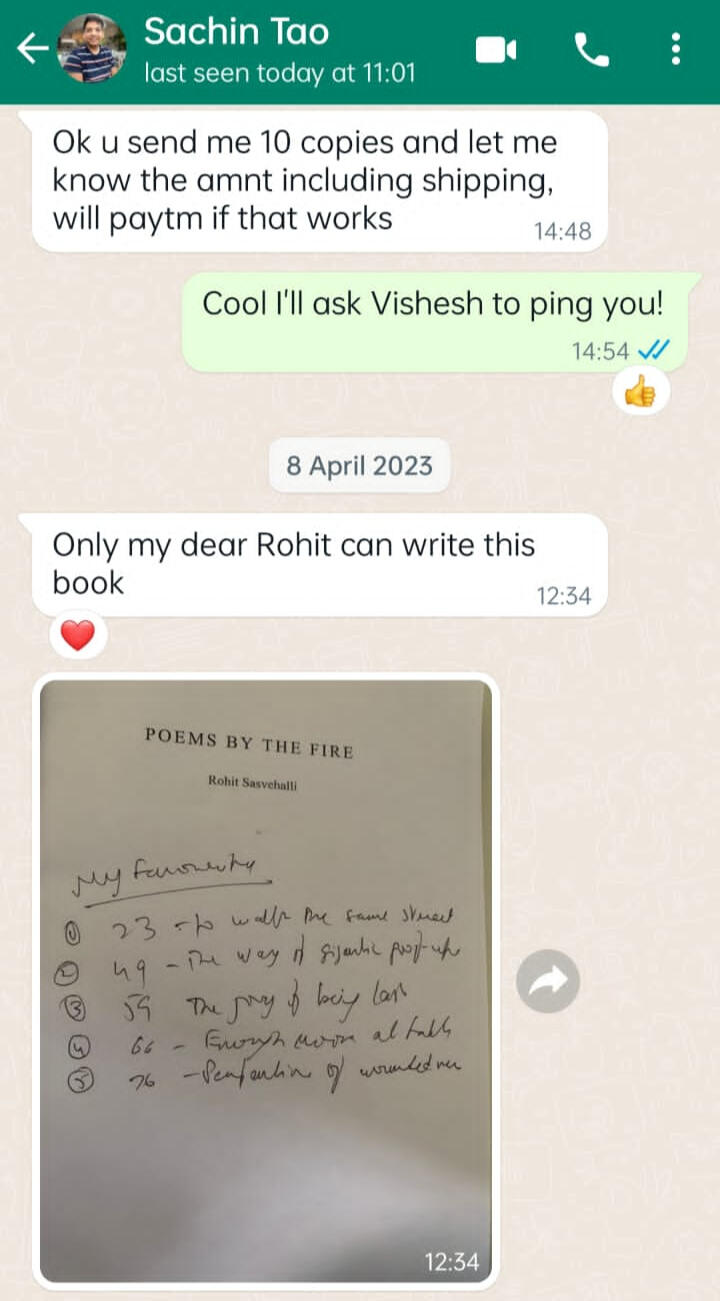 Sachin Tao
last seen today at 11:01
Ok u send me 10 copies and let me
know the amnt including shipping,
will paytm if that works
14:48
Cool I'll ask Vishesh to ping you!
14:54
8 April 2023
Only my dear Rohit can write this
book
12:34
POEMS BY THE FIRE
Rohit Sasvehalli
My
① 23 - to walk the same street
② 49 - The way of gigantic
③ 59 The joy of being
④ 66 - Enough moon
⑤ 76 - of
12:34